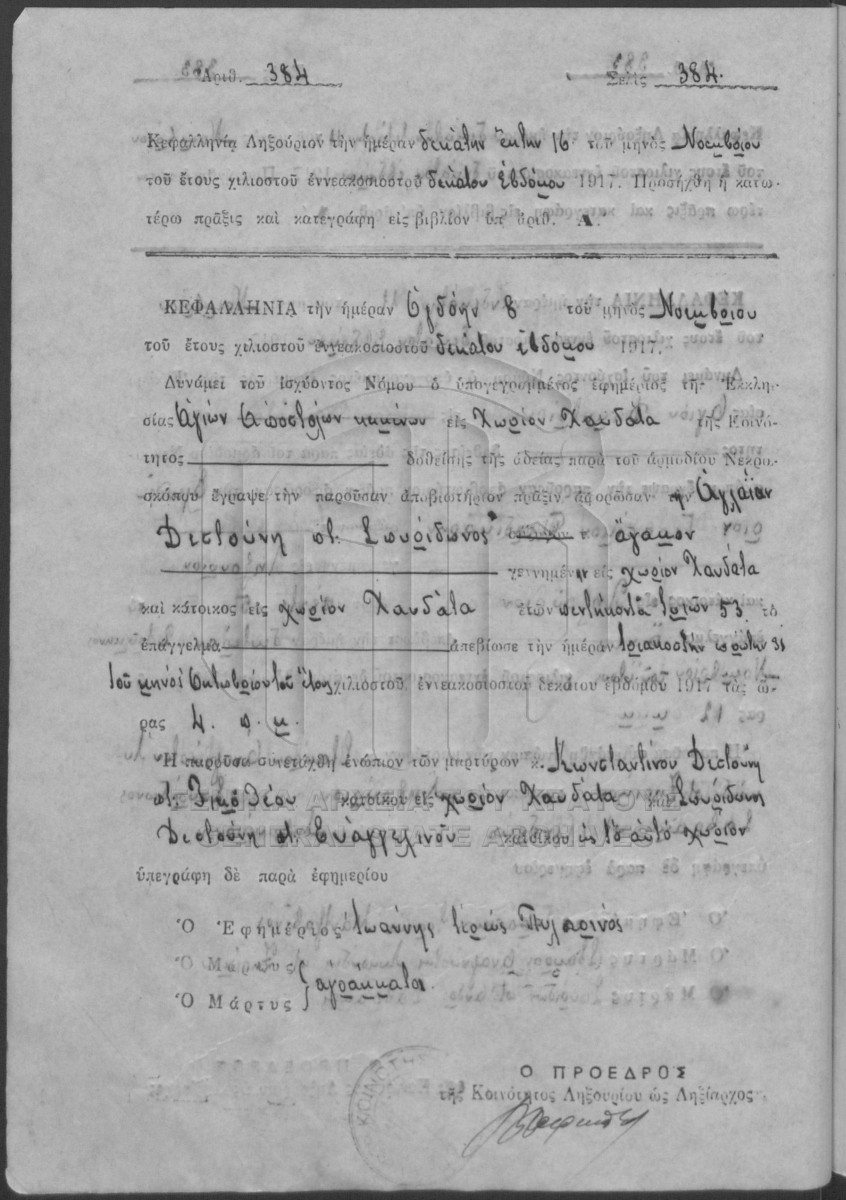 Ἀριθ. 384 Σελὶς 384.
Κεφαλληνία Ληξούριον τὴν ἡμέραν δεκάτην ἕκτην 16 τοῦ μηνὸς Νοεμβρίου
τοῦ ἔτους χιλιοστοῦ ἐννεακοσιοστοῦ δεκάτου ἑβδόμου 1917. Προσήχθη ἡ κατω-
τέρω πρᾶξις καὶ κατεγράφη εἰς βιβλίον ὑπ' ἀριθ. Α'
ΚΕΦΑΛΛΗΝΙΑ τὴν ἡμέραν Ὀγδόην 8 τοῦ μηνὸς Νοεμβρίου
τοῦ ἔτους χιλιοστοῦ ἐννεακοσιοστοῦ δεκάτου ἑβδόμου 1917.
Δυνάμει τοῦ ἰσχύοντος Νόμου ὁ ὑπογεγραμμένος ἐφημέριος τῆς Ἐκκλη-
σίας Ἁγίων Ἀποστόλων εἰς Χωρίον Χαυδάτα τῆς Κοινό-
τητος δοθείσης τῆς ἀδείας παρὰ τοῦ ἁρμοδίου Νεκρο-
σκόπου ἔγραψε τὴν παροῦσαν ἀποβιωτήριον πρᾶξιν ἀφορῶσαν τὴν Ἀγλαΐαν
Δεστούνη π. Σπυρίδωνος ἄγαμον
γεννημένην εἰς χωρίον Χαυδάτα
καὶ κάτοικος εἰς χωρίον Χαυδάτα ἐτῶν πεντήκοντα τριῶν 53 τὸ
ἐπάγγελμα ἀπεβίωσε τὴν ἡμέραν τριακοστὴν πρώτην 31
τοῦ μηνὸς Ὀκτωβρίου τοῦ ἔτους χιλιοστοῦ ἐννεακοσιοστοῦ δεκάτου ἑβδόμου 1917 τὰς ὥ-
ρας 4. π. μ.
Ἡ παροῦσα συνετάχθη ἐνώπιον τῶν μαρτύρων κ. Κωνσταντίνου Δεστούνη
π. Τιμοθέου κατοίκου εἰς χωρίον Χαυδάτα καὶ Σπυρίδωνη
Δεστούνη π. Εὐαγγελινοῦ κατοίκου εἰς τὸ αὐτὸ χωρίον
ὑπεγράφη δὲ παρὰ ἐφημερίου
Ὁ Ἐφημέριος Ἰωάννης ἱερεὺς Πυλαρινός
Ὁ Μάρτυς
ἀγράμματοι
Ὁ Μάρτυς
Ο ΠΡΟΕΔΡΟΣ
τῆς Κοινότητος Ληξουρίου ὡς Ληξίαρχος